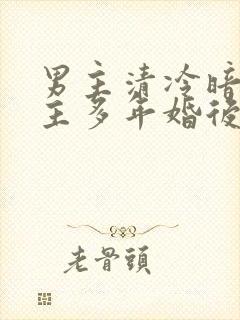 男主清冷暗
主多年婚後
老骨頭